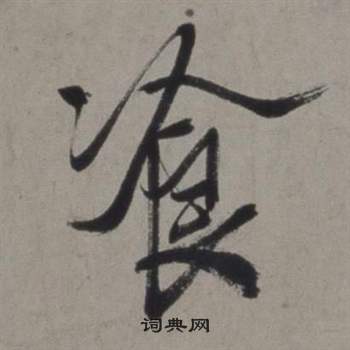 飡
词典网